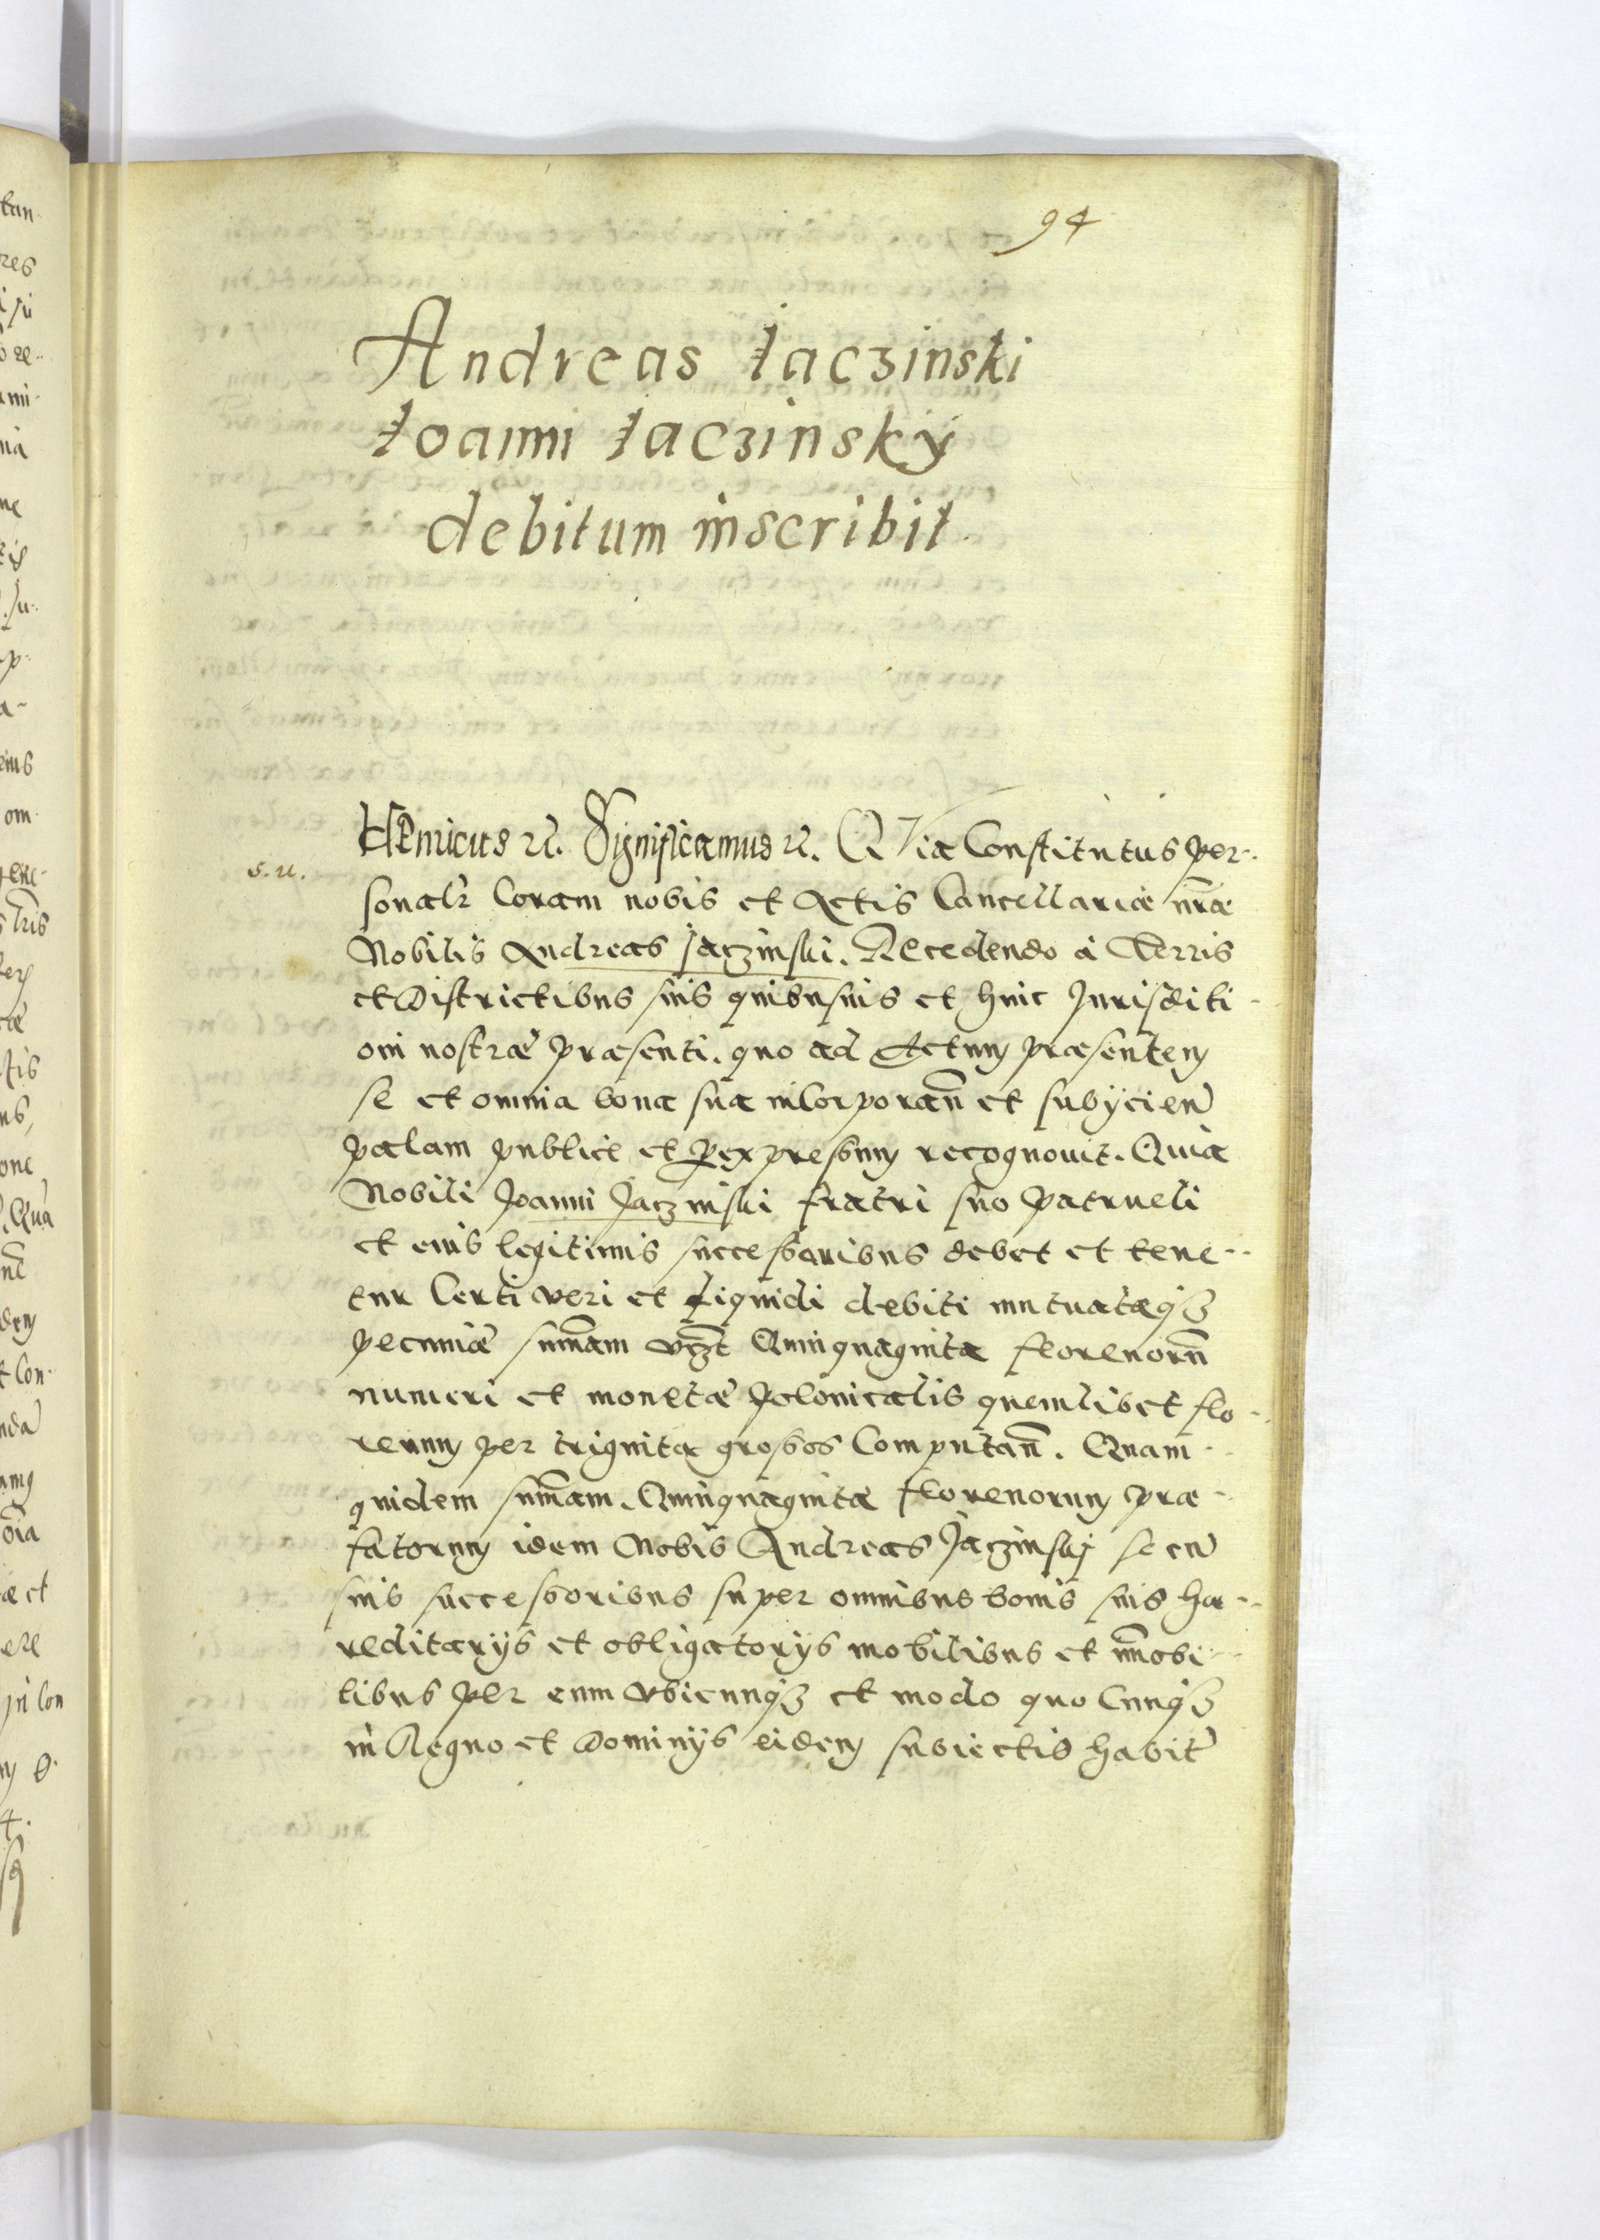 94
Andreas Iaczinski
Ioanni Iaczinskÿ
debitum inscribit.
Henricus etc. Significamus etc. QVia Constitutus per-
s. n.
sonalr Coram nobis et Actis Cancellariæ nræ
Nobilis Andreas Jaczinski. Recedendo à Terris
et Districtibus suis quibusuis et huic Jurisditi-
oni nostræ præsenti. quo ad Actum præsentem
se et omnia bona sua incorporan̄ et subÿcien̄
palam publice et per expressum recognouit. Quia
Nobili Joanni Jaczinski fratri suo patrueli
et eius legitimis successoribus debet et tene-
tur Certi veri et Liquidi debiti mutuatæq3
pecuniæ sum̄am vcz̄t Quinquaginta florenorū
numeri et monetæ Polonicalis quemlibet flo-
renum per triginta grossos Computan̄. Quam-
quidem sum̄am. Quinquaginta florenorum præ-
fatorum idem Nobis Andreas Jaczinskj se cū
suis successoribus super omnibus bonis suis hæ-
reditarÿs et obligatorÿs mobilibus et im̄obi-
libus per eum vbicunq3 et modo quo Cunq3
in Regno et Dominÿs eidem subiectis habit̄